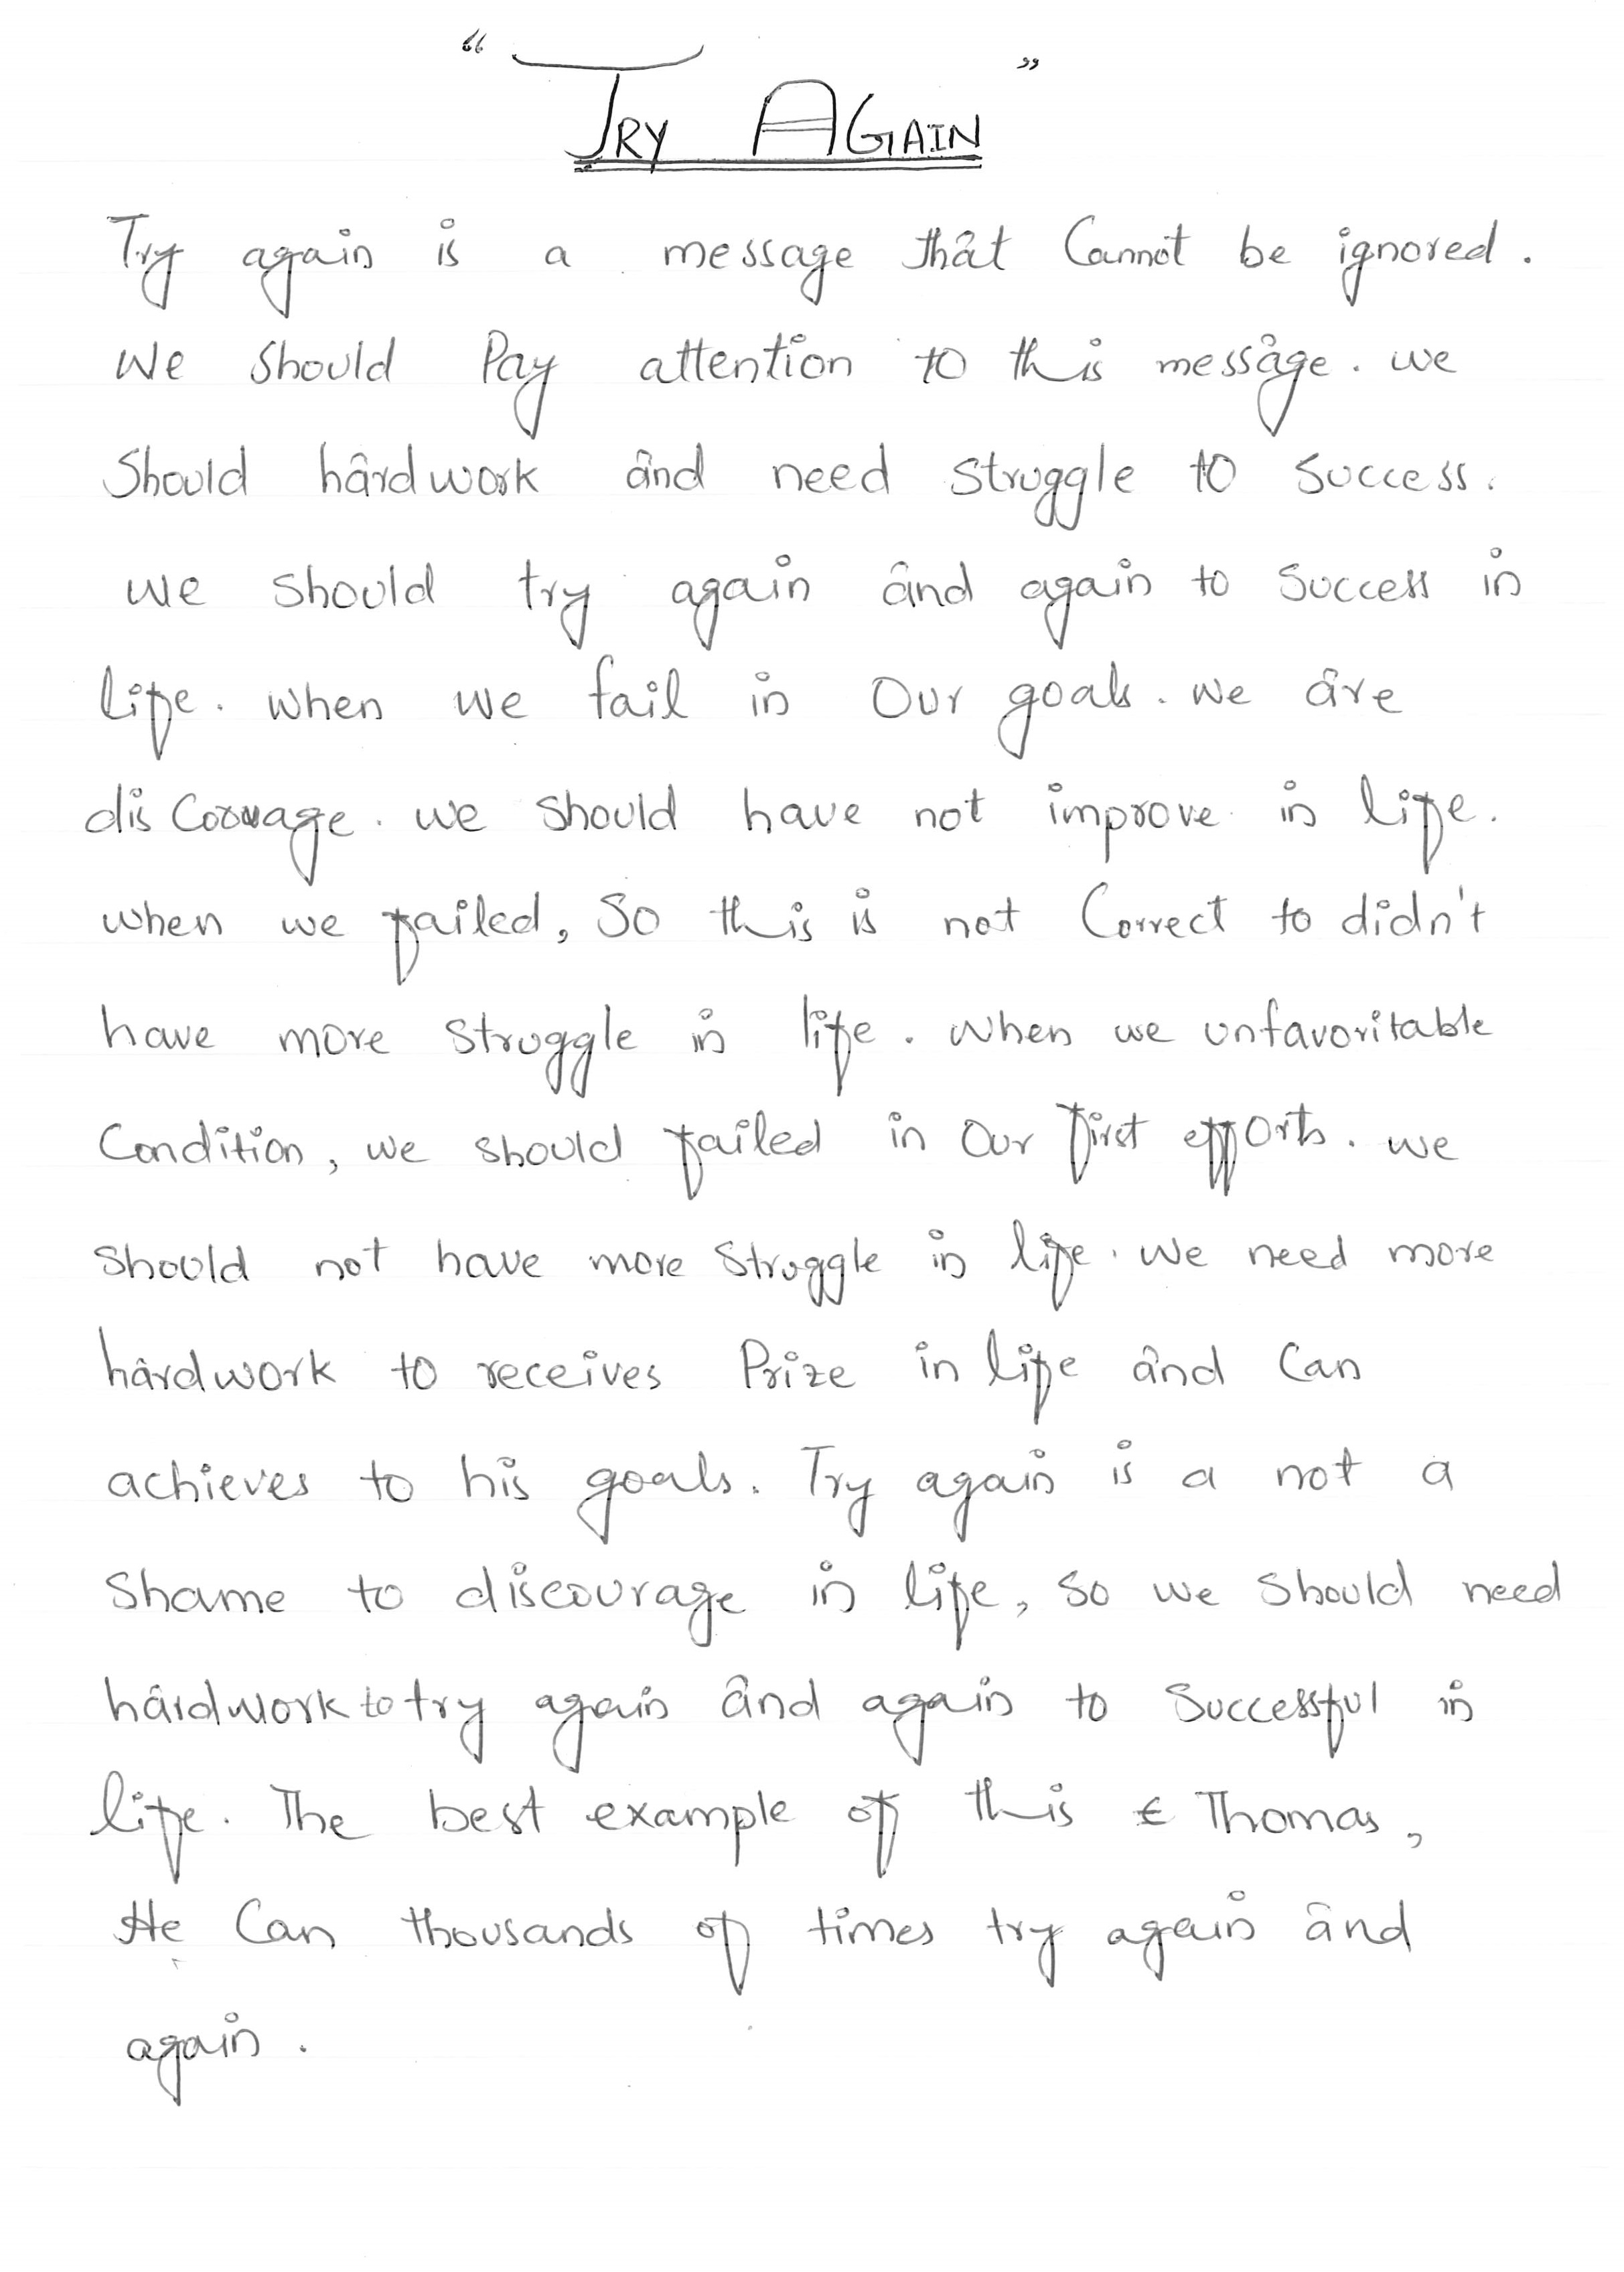 “ TRY AGAIN ”
Try again is a message that Cannot be ignored.
We should Pay attention to this message. we
Should hardwork and need struggle to success.
we should try again and again to success in
life. when we fail in Our goals. we are
dis Coouage. we should have not improve in life.
when we failed, So this is not Correct to didn't
have more struggle in life. when we unfavoritable
Condition, we should failed in Our first efforts. we
should not have more struggle in life. we need more
hardwork to receives Prize in life and Can
achieves to his goals. Try again is a not a
Shame to discourage in life, so we should need
hardwork to try again and again to Successful in
life. The best example of this € Thomas,
He Can thousands of times try again and
again.